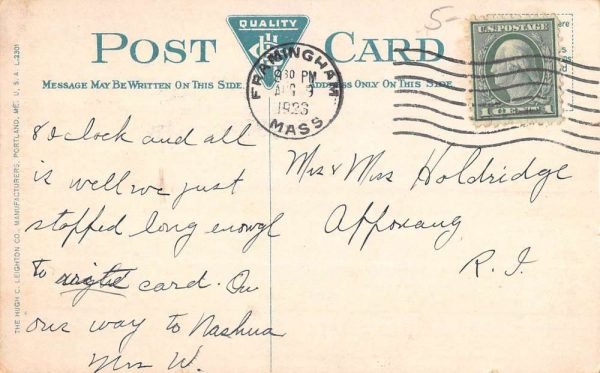 5-
QUALITY
POST CARD
MESSAGE MAY BE WRITTEN ON THIS SIDE.
ADDRESS ONLY ON THIS SIDE
FRAMINGHAM
9 30 PM
AUG 9
1923
MASS
U.S. POSTAGE
1
THE HUGH C. LEIGHTON CO., MANUFACTURERS, PORTLAND, ME., U. S. A. L 2301
8 o'clock and all
is well we just
stopped long enough
to write card. On
our way to Nashua
Mrs W.
Mrs & Miss Holdridge
Apponaug
R. I.